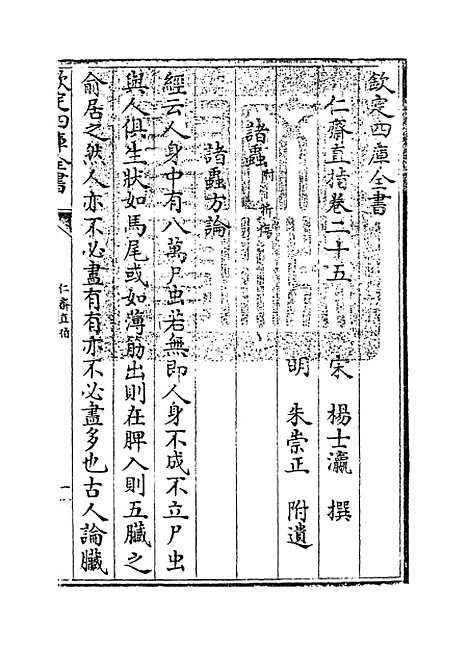 欽定四庫全書
仁齋直指卷二十五
宋　楊士瀛　撰
明　朱崇正　附遺
諸蟲附
諸蟲方論
經云人身中有八萬尸虫若無即人身不成不立尸虫
與人俱生狀如馬尾或如薄筋出則在脾入則五臟之
俞居之然人亦不必盡有有亦不必盡多也古人論臟
欽定四庫全書
仁齋直指
一